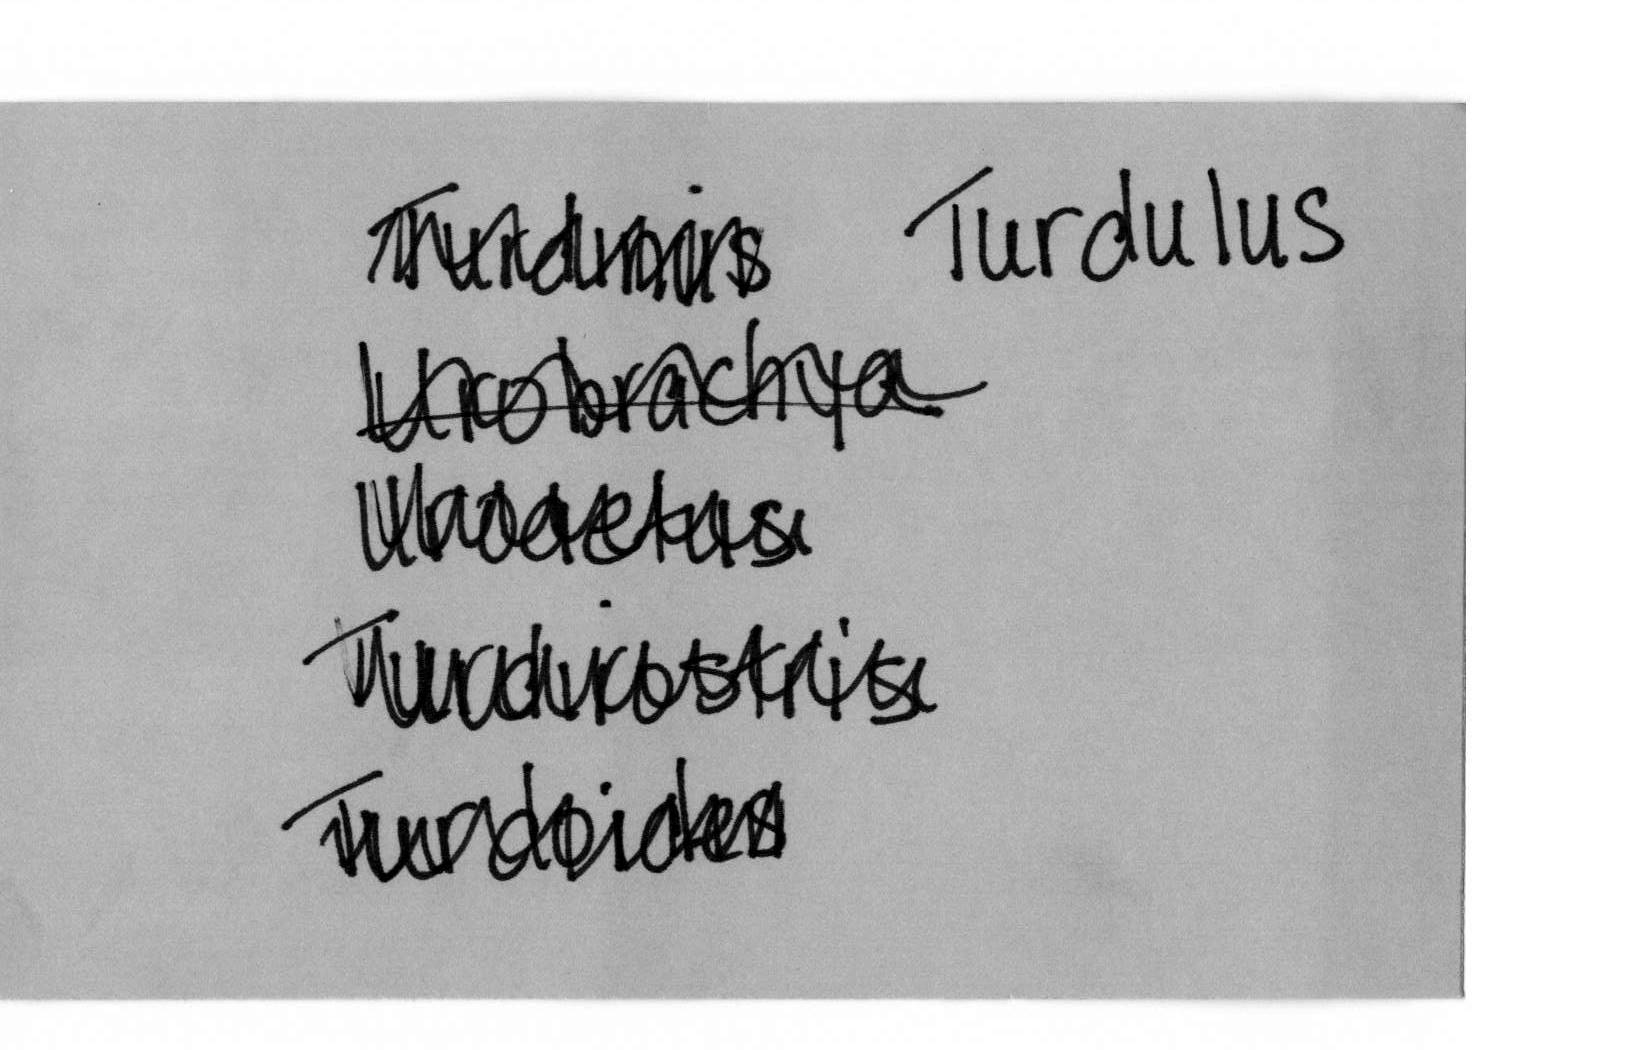 Turdinus Turdulus
Urobrachya
Turdirostris
Turdoides